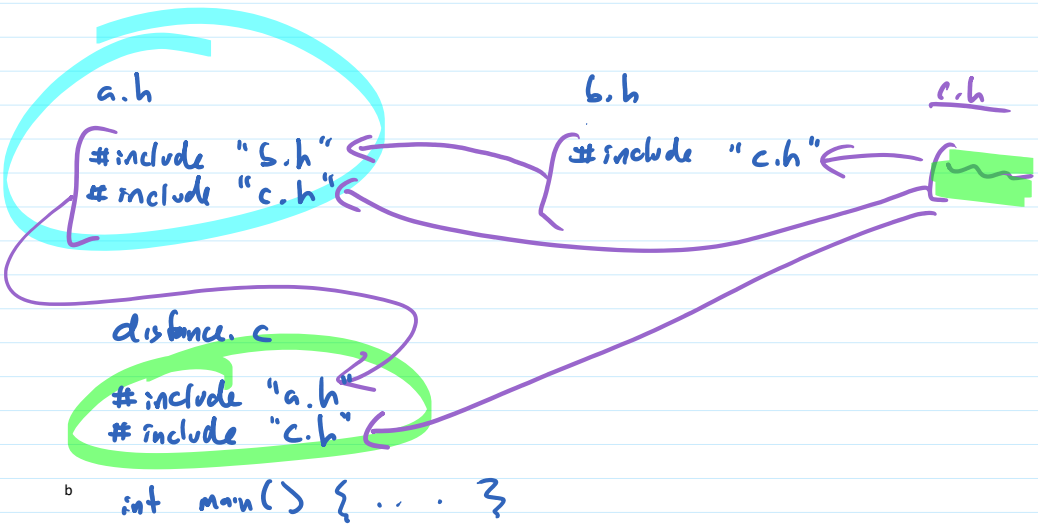 a.h
#include "b.h"
#include "c.h"
b.h
#include "c.h"
c.h
distance.c
#include "a.h"
#include "c.h"
b
int main() { .... }